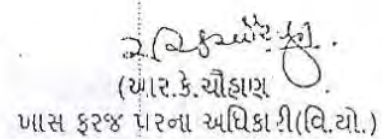 (આર.કે.ચૌહાણ
ખાસ ફરજ પરના અધિકારી(વિ.યો.)